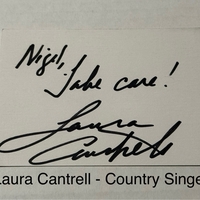 Nigel,
Take care!
Laura
Cantrell
Laura Cantrell - Country Singe